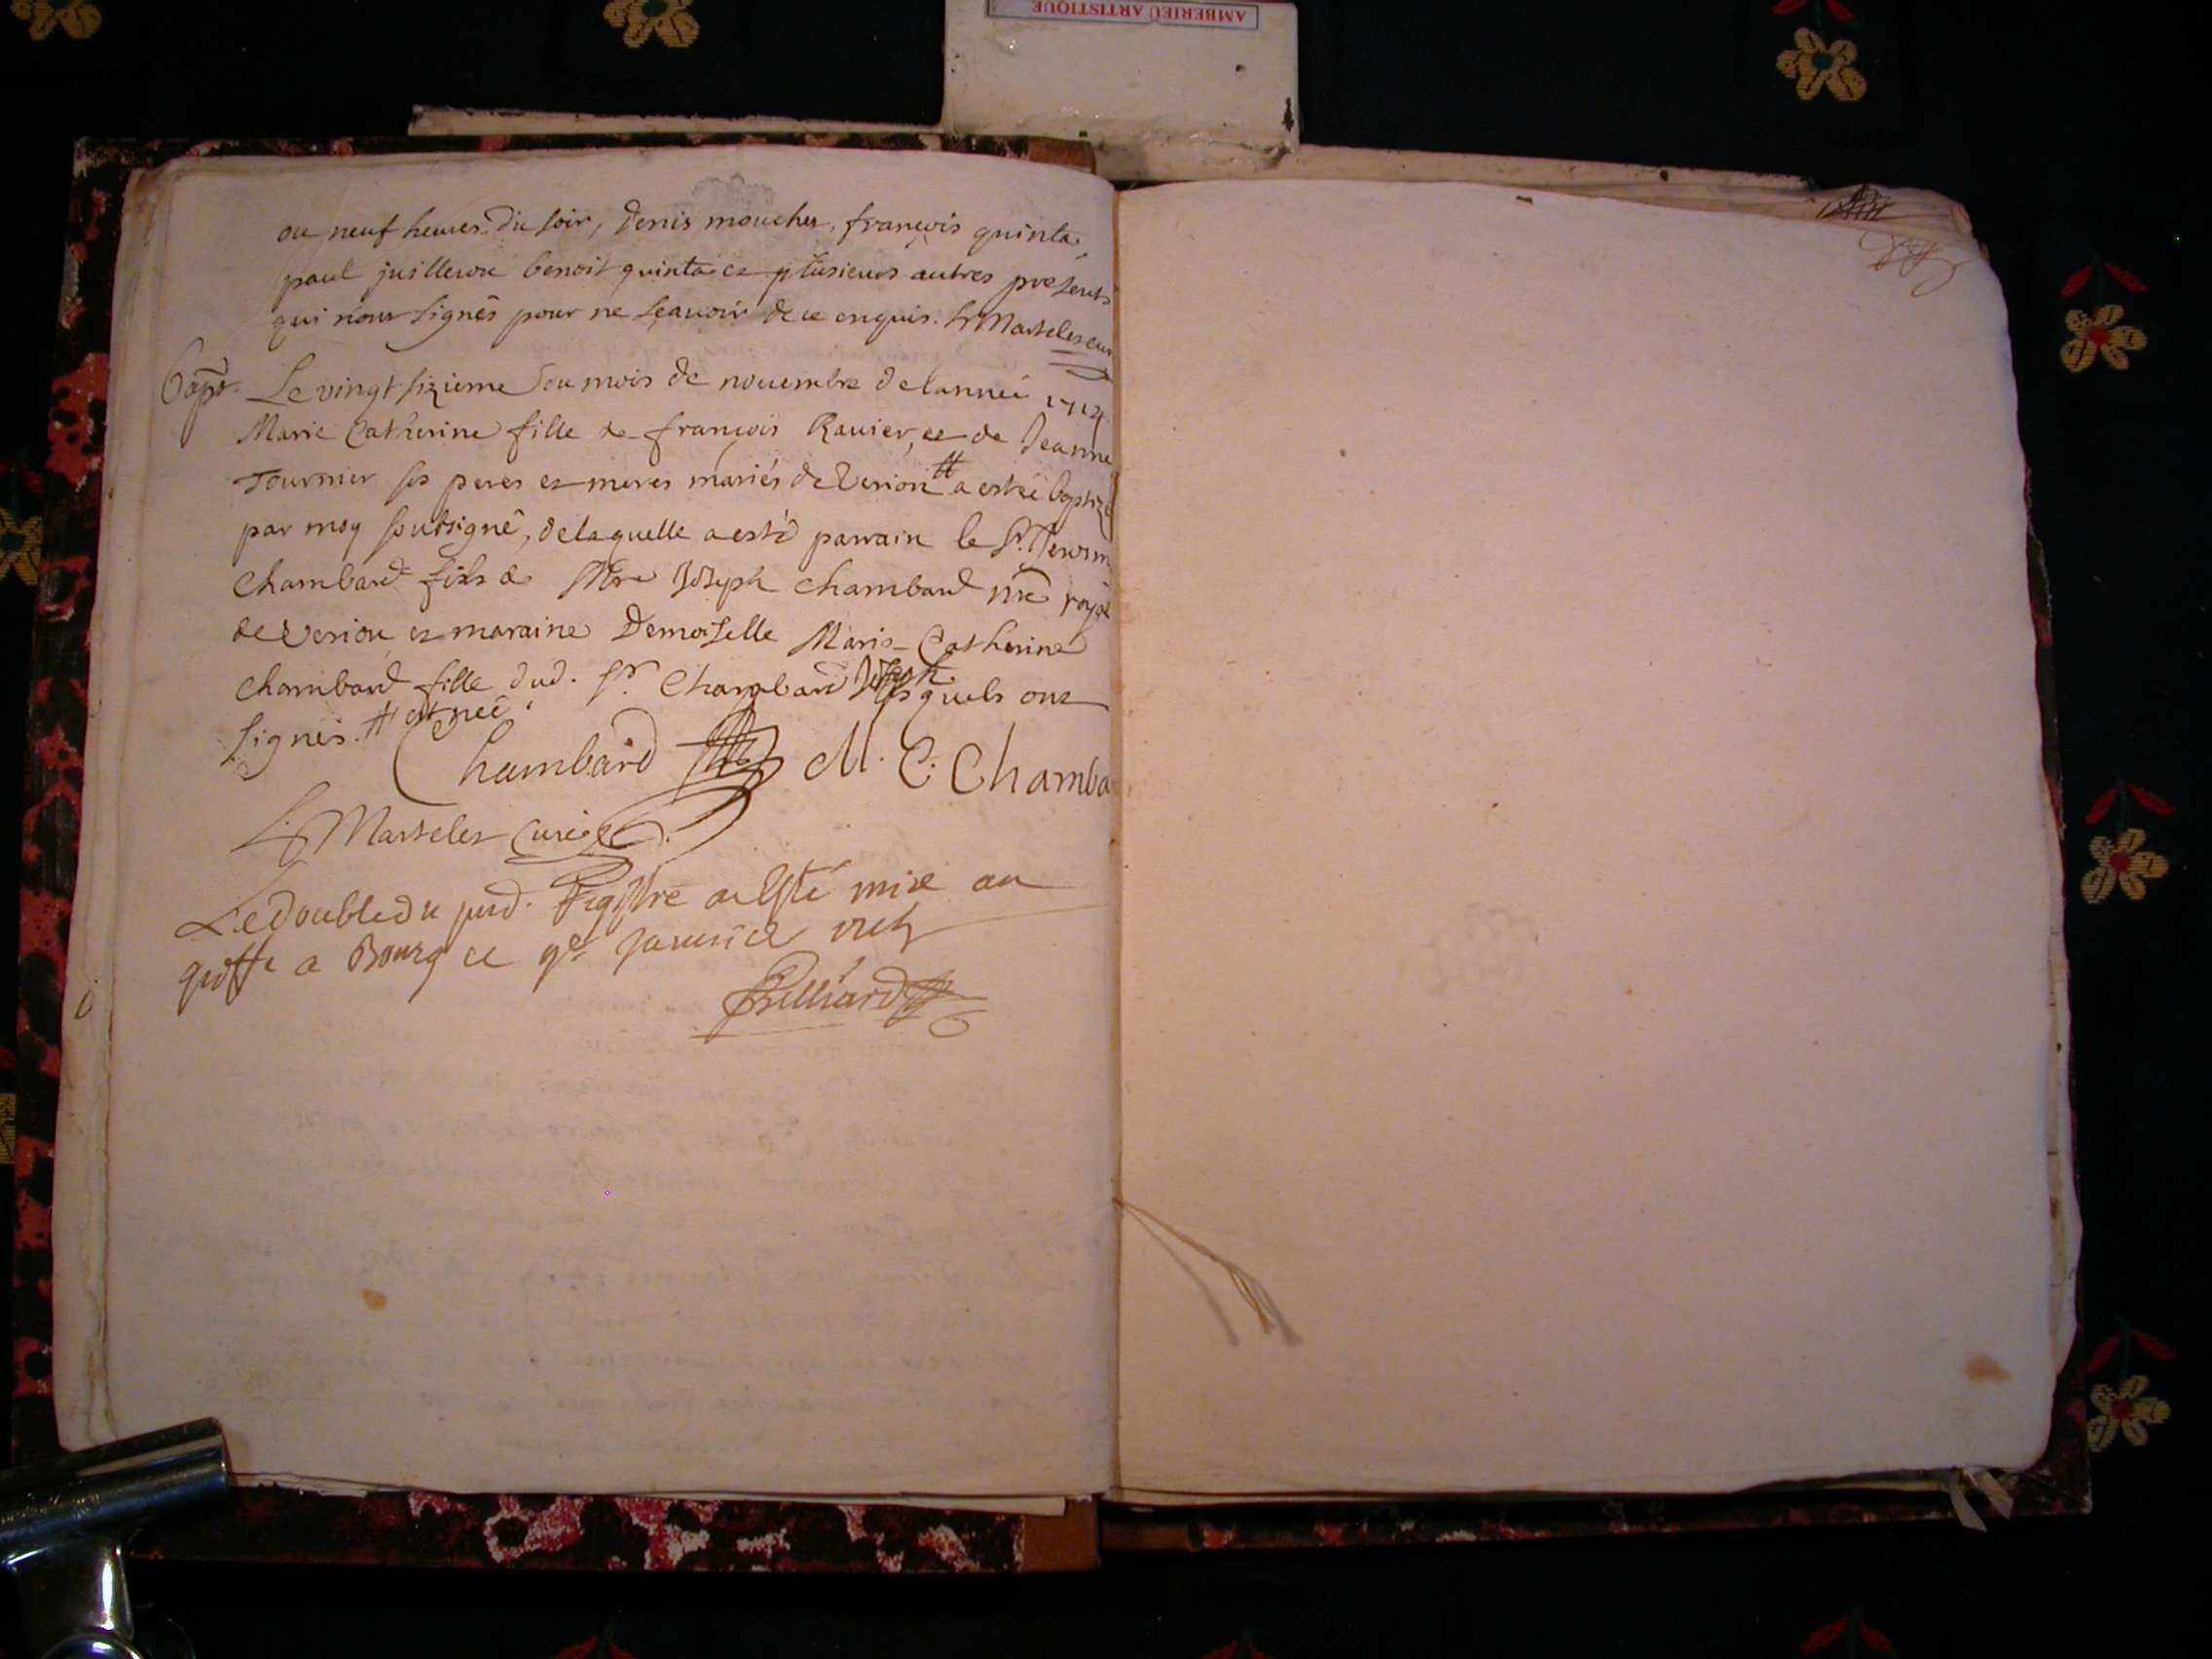 AMBERIEU ARTISTIQUE
ou neuf heures du soir, denis mouchet, françois quinta
paul juilleron benoit quinta et plusieurs autres presents
qui nont signés pour ne sçavoir de ce enquis. Martelet curé
bapt. Le vingt sizieme du mois de novembre de lannée 1714
Marie Catherine fille de françois Ravier, et de Jeanne
Tournier ses peres et meres mariés de Verion # a estéé baptizé
par moy soubsigné, de laquelle a esté parrain le Sr.
Chambard fils de Mre Joseph Chambard nre royal
de Verion et maraine Demoiselle Marie Catherine
Chambard fille dud. Sr. Chambard Joseph lesquels ont
signés. # et née
Chambard M. C. Chamba
Martelet curé
Le double du pnt. Registre a esté mise au
greffe a Bourg ce